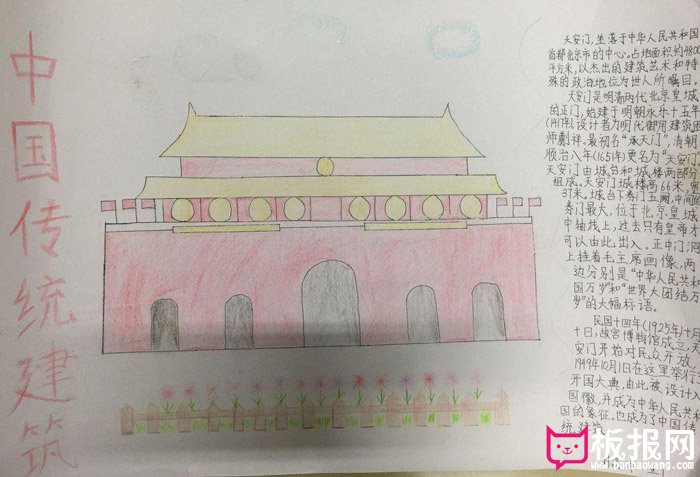 中国传统建筑
天安门，坐落于中华人民共和国
首都北京市的中心。占地面积约4800
平方米，以杰出的建筑艺术和特
殊的政治地位为世人所瞩目。
天安门是明清两代北京皇城
的正门，始建于明朝永乐十五年
(1417年)，设计者为明代御用建筑匠
师蒯祥。最初名"承天门"，清朝
顺治八年(1651年)更名为"天安门"
天安门由城台和城楼两部分
组成。天安门城楼高66米，宽
37米。城台下券门五阙，中间的
券门最大，位于北京皇城
中轴线上，过去只有皇帝才
可以由此出入。正中门洞
上挂着毛主席画像，两
边分别是"中华人民共和
国万岁"和"世界大团结万
岁"的大幅标语。
民国十四年(1925年)十月
十日，故宫博物馆成立，天
安门开始对民众开放。
1949年10月1日在这里举行
开国大典，由此被设计入
国徽，并成为中华人民共
国的象征。也成为了中国传
统建筑
板报网
www.banbaowang.com